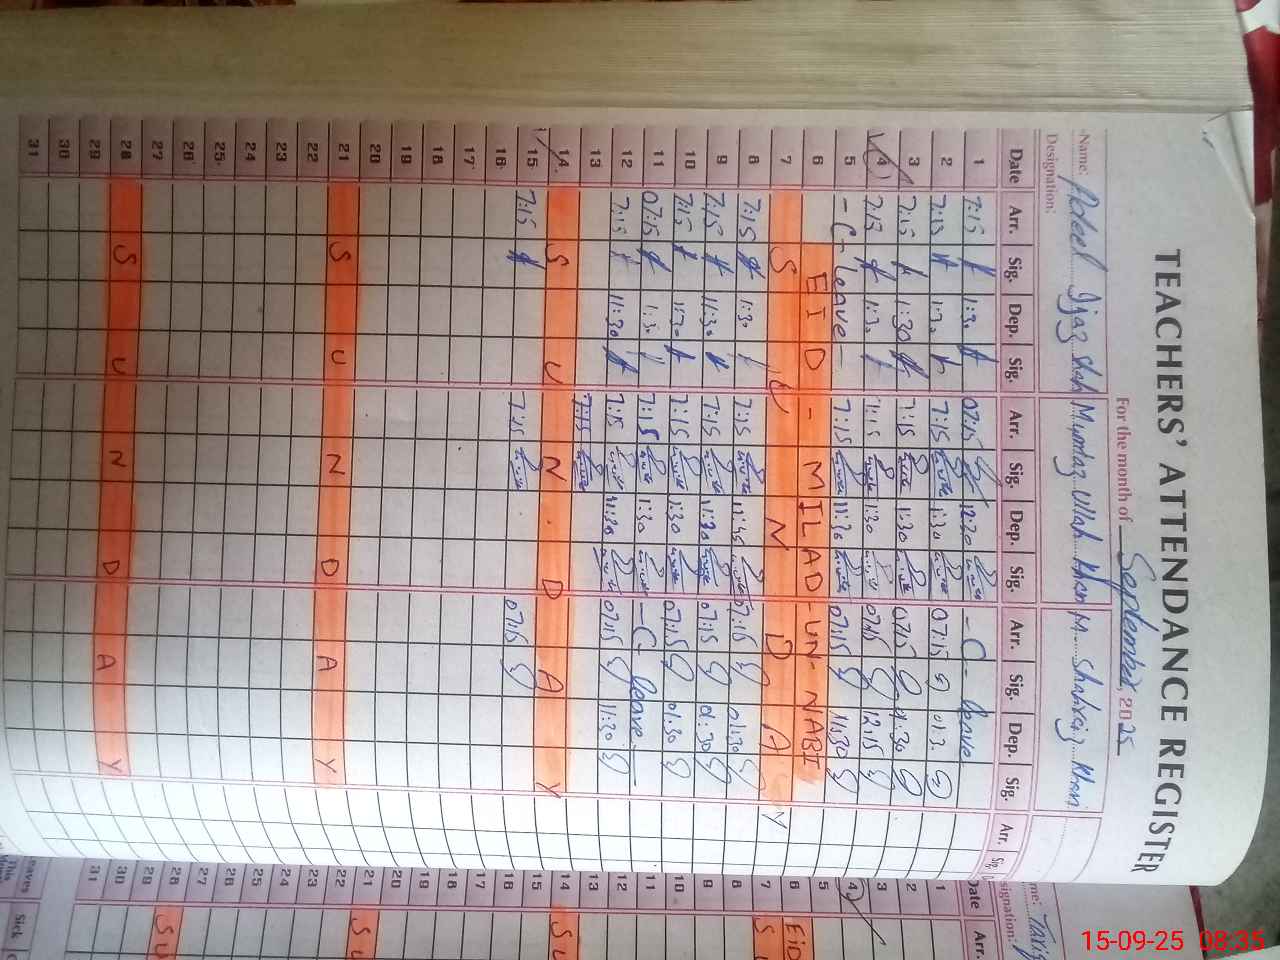 TEACHERS' ATTENDANCE REGISTER
For the month of September, 2025
Name: Adeel Ijaz Shah Mumtaz Ullah Khan M. Shahxaiz Khan
Designation:
Date Arr. Sig. Dep. Sig. Arr. Sig. Dep. Sig. Arr. Sig. Dep. Sig. Arr. Sig.
1 7:15 1:30 07:15 12:20 - C - leave
2 7:15 1:30 7:15 1:30 07:15 01:3
3 7:15 1:30 7:15 1:30 07:15 01:30
4 7:15 1:30 7:15 1:30 07:15 12:15
5 - C - leave - 7:15 11:30 07:15 11:30
6 EID - MILAD-UN-NABI
7 SUNDAY
8 7:15 1:30 7:15 11:45 07:15 01:30
9 7:15 11:30 7:15 11:30 07:15 01:30
10 7:15 1:30 7:15 1:30 07:15 01:30
11 07:15 1:30 7:15 1:30 - C - leave
12 7:15 11:30 7:15 11:30 07:15 11:30
13 7:15
14 SUNDAY
15 7:15 7:15 07:15
16
17
18
19
20
21 SUNDAY
22
23
24
25
26
27
28 SUNDAY
29
30
31
Date Arr.
1
2
3
4
5
6 EID
7 S
8
9
10
11
12
13
14 SU
15
16
17
18
19
20
21 SU
22
23
24
25
26
27
28 SU
29
30
31
Sick
15-09-25 08:35